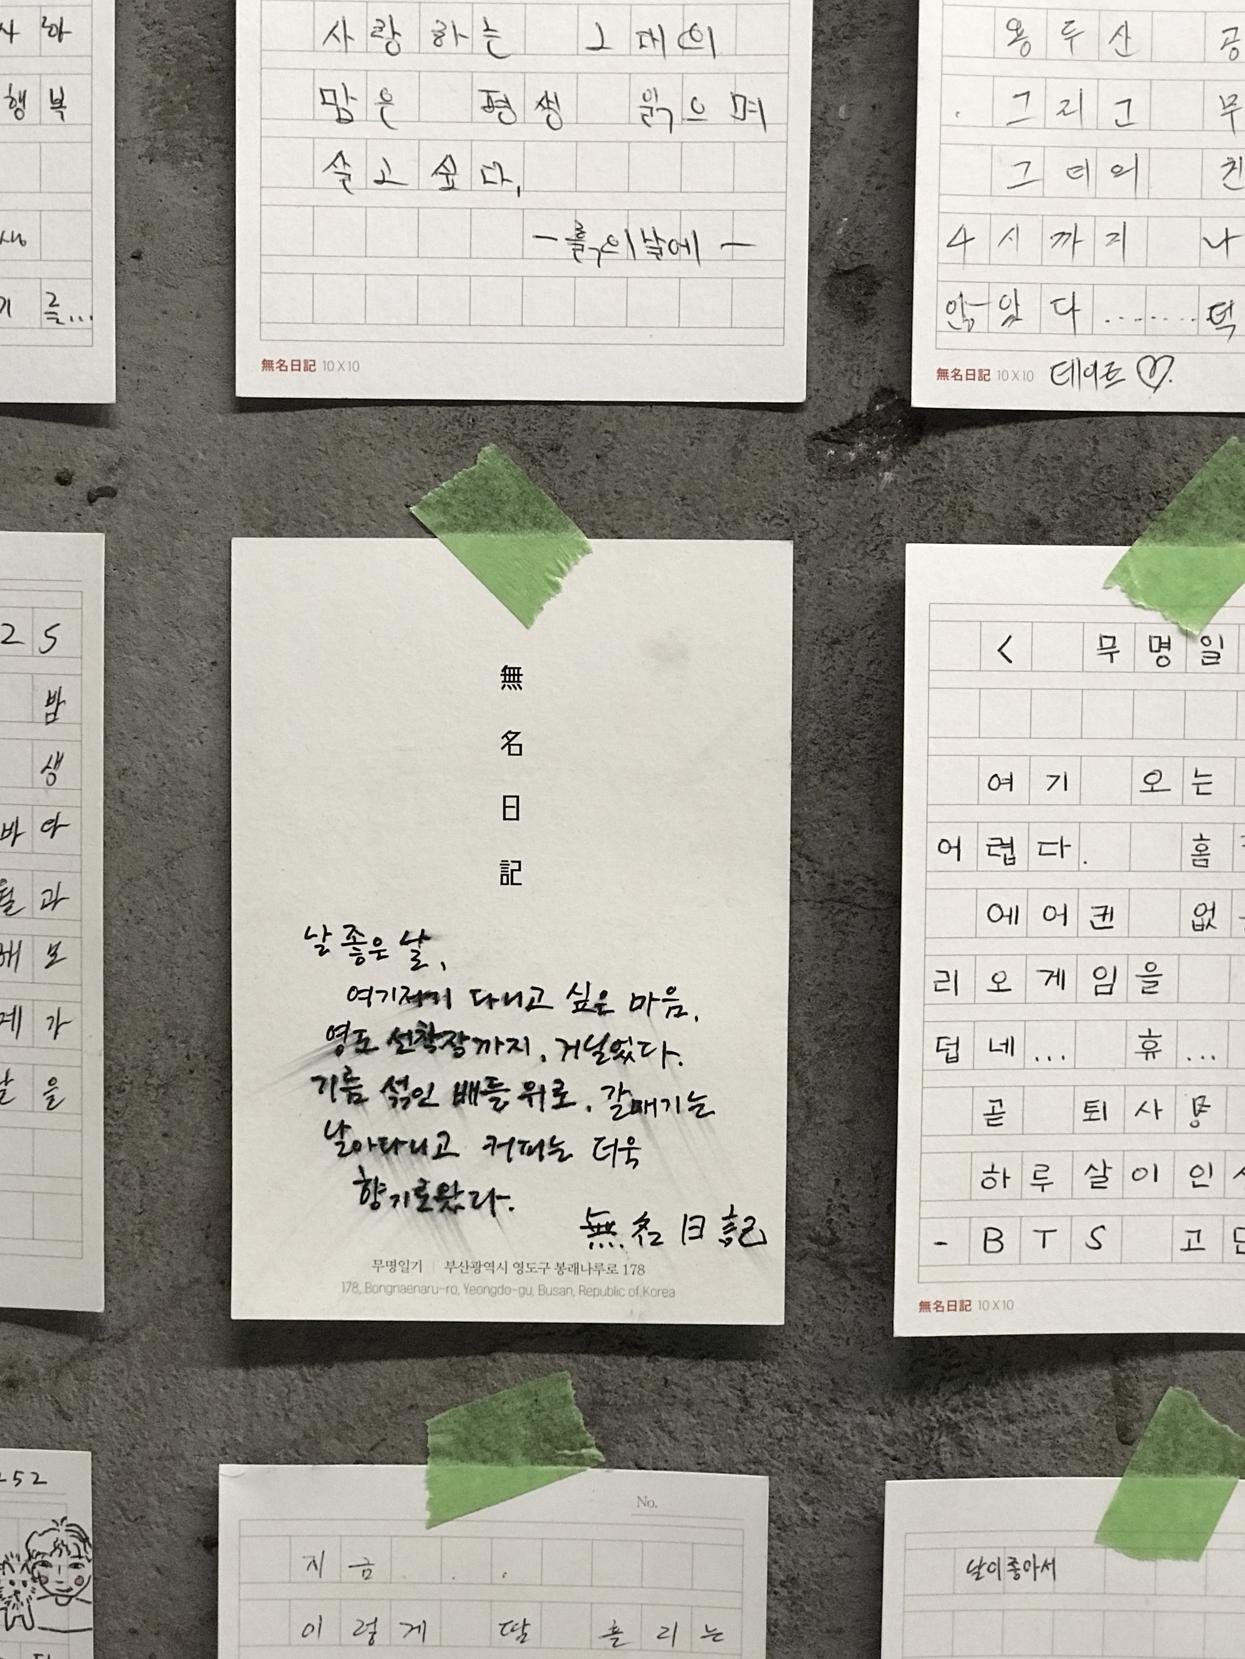 사하
행복
글...
사랑하는 그대의
맘은 평생 읽으며
살고 싶다.
無名日記 10X10
용두산 공
. 그리고 무
그녀의 친
4시까지 나
않았다.......
無名日記 10X10 데이트♡.
25
밤
생
바아
과
해 모
계가
을
無
名
日
記
날 좋은 날,
여기저기 다니고 싶은 마음,
영도 선착장까지, 거닐었다.
기름 섞인 배들 위로, 갈매기는
날아다니고 커피는 더욱
향기로왔다.
無名日記
무명일기 | 부산광역시 영도구 봉래나루로 178
178, Bongnaenaru-ro, Yeongdo-gu, Busan, Republic of Korea
< 무명일
여기 오는
어렵다. 홈
에어컨 없
리오게임을
덥네... 휴...
곧 퇴사
하루살이인
- BTS 고민
無名日記 10X10
252
No.
지금...
이렇게 땀 흘리는
날이 좋아서